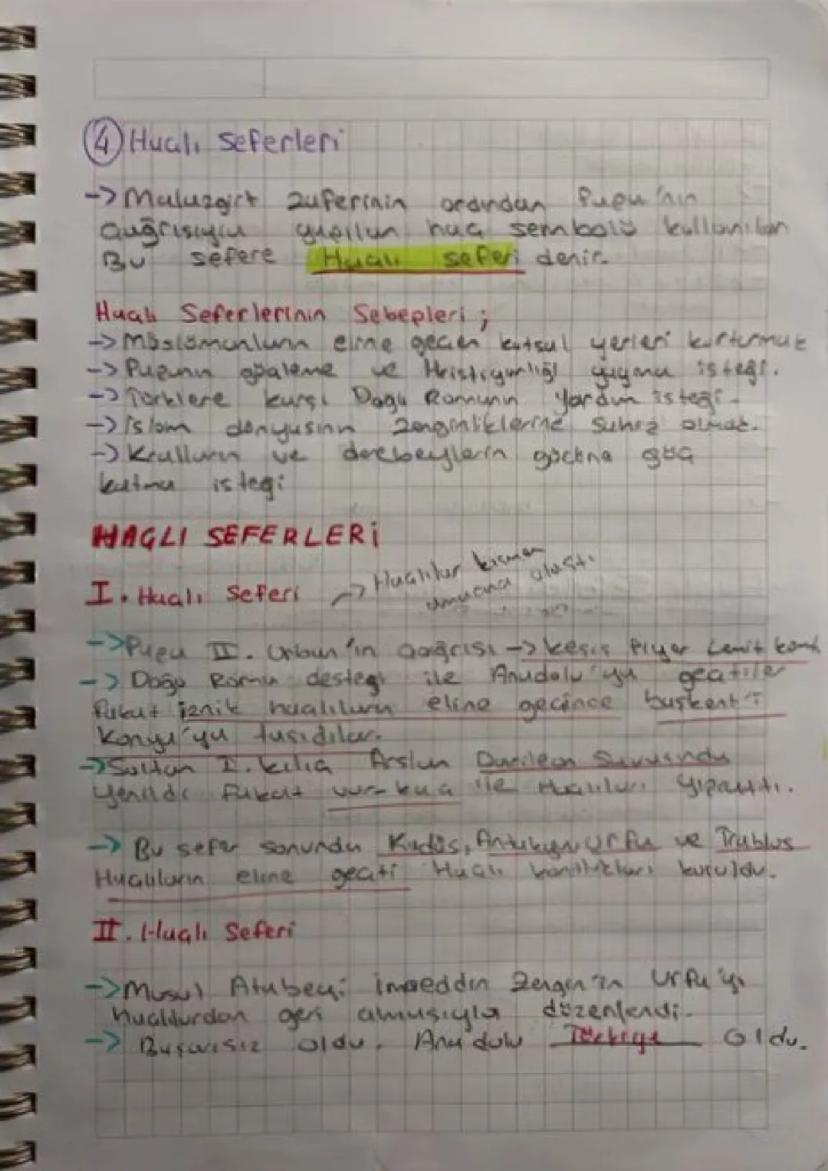 ④ Haçlı Seferleri
-> Malazgirt zaferinin ardından Papa'nın
çağrısıyla yapılan haç sembolü kullanılan
Bu sefere Haçlı seferi denir.
Haçlı Seferlerinin Sebepleri ;
-> Müslümanların eline geçen kutsal yerleri kurtarmak
-> Papanın güçlenme ve Hristiyanlığı yayma isteği.
-> Türklere karşı Doğu Romanın yardım isteği.
-> İslam dünyasının zenginliklerine sahip olmak.
-> Kralların ve derebeylerin gücüne güç
katma isteği
HAÇLI SEFERLERİ
I. Haçlı Seferi -> Haçlılar kısmen
amacına ulaştı.
-> Papa II. Urban'ın çağrısı -> keşiş Piyer Lermit
-> Doğu Roma desteği ile Anadolu'ya geçtiler
Fakat İznik haçlıların eline geçince başkent'i
Konya'ya taşıdılar.
-> Sultan I. Kılıç Arslan Savaşında
yenildi Fakat vur-kaç ile Haçlıları yıprattı.
-> Bu sefer sonunda Kudüs, Antakya, Urfa ve Trablus
Haçlıların eline geçti Haçlı kontlukları kuruldu.
II. Haçlı Seferi
-> Musul Atabeyi İmaeddin Zengin'in Urfa'yı
haçlılardan geri almasıyla düzenlendi.
-> Başarısız oldu. Anadolu Türkiye Oldu.